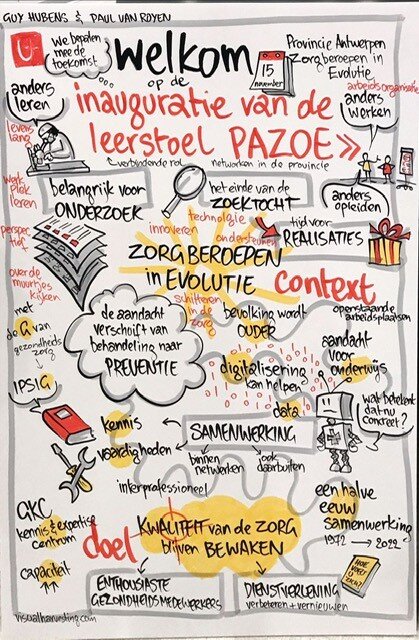 GUY HUBENS & PAUL VAN ROYEN
U
We bepalen
mee de
toekomst
welkom
op de
15
november
Provincie Antwerpen
Zorgberoepen in
Evolutie
inauguratie van de
leerstoel PAZOE »
verbindende rol
netwerken in de provincie
anders
leren
levens
lang
werk
plek
leren
arbeidsorganisatie
anders
werken
anders
opleiden
belangrijk voor
ONDERZOEK
het einde van de
ZOEKTOCHT
tijd voor
REALISATIES
technologie
innoveren
ondersteunen
perspec
tief
over de
muurtjes
kijken
ZORGBEROEPEN
in EVOLUTIE
schitteren
in de
zorg
context
met
de G van
gezondheids
zorg
IPSIG
de aandacht
verschuift van
behandeling naar
PREVENTIE
bevolking wordt
OUDER
openstaande
arbeidsplaatsen
aandacht
voor
onderwijs
digitalisering
kan helpen
data
wat betekent
dat nu
concreet?
kennis
vaardigheden
SAMENWERKING
binnen
netwerken
ook
daarbuiten
interprofessioneel
GKC
kennis & expertise
centrum
capaciteit
doel
KWALITEIT van de ZORG
blijven BEWAKEN
een halve
eeuw
samenwerking
1972 → 2022
ENTHOUSIASTE
GEZONDHEIDSMEDEWERKERS
DIENSTVERLENING
verbeteren + vernieuwen
HOE
VOEL U
ZICH?
visualharvesting.com